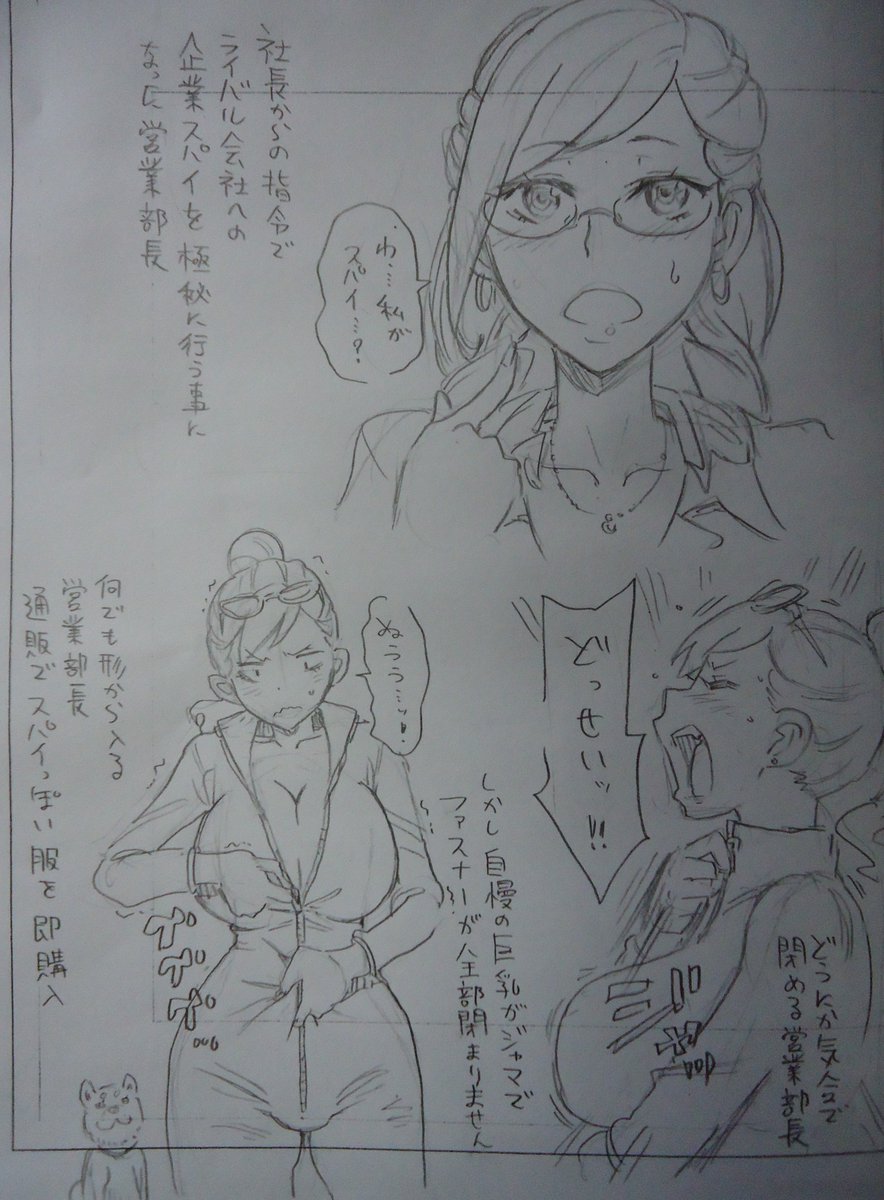 社長からの指令で
ライバル会社への
企業スパイを極秘に行う事に
なった営業部長
わ…私が
スパイ…?
何でも形から入る
営業部長
通販でスパイっぽい服を即購入
ぬううう…ッ!
ググググ
しかし自慢の巨乳がジャマで
ファスナーが全部閉まりません
どっせいッ!!
どうにか気合で
閉める営業部長